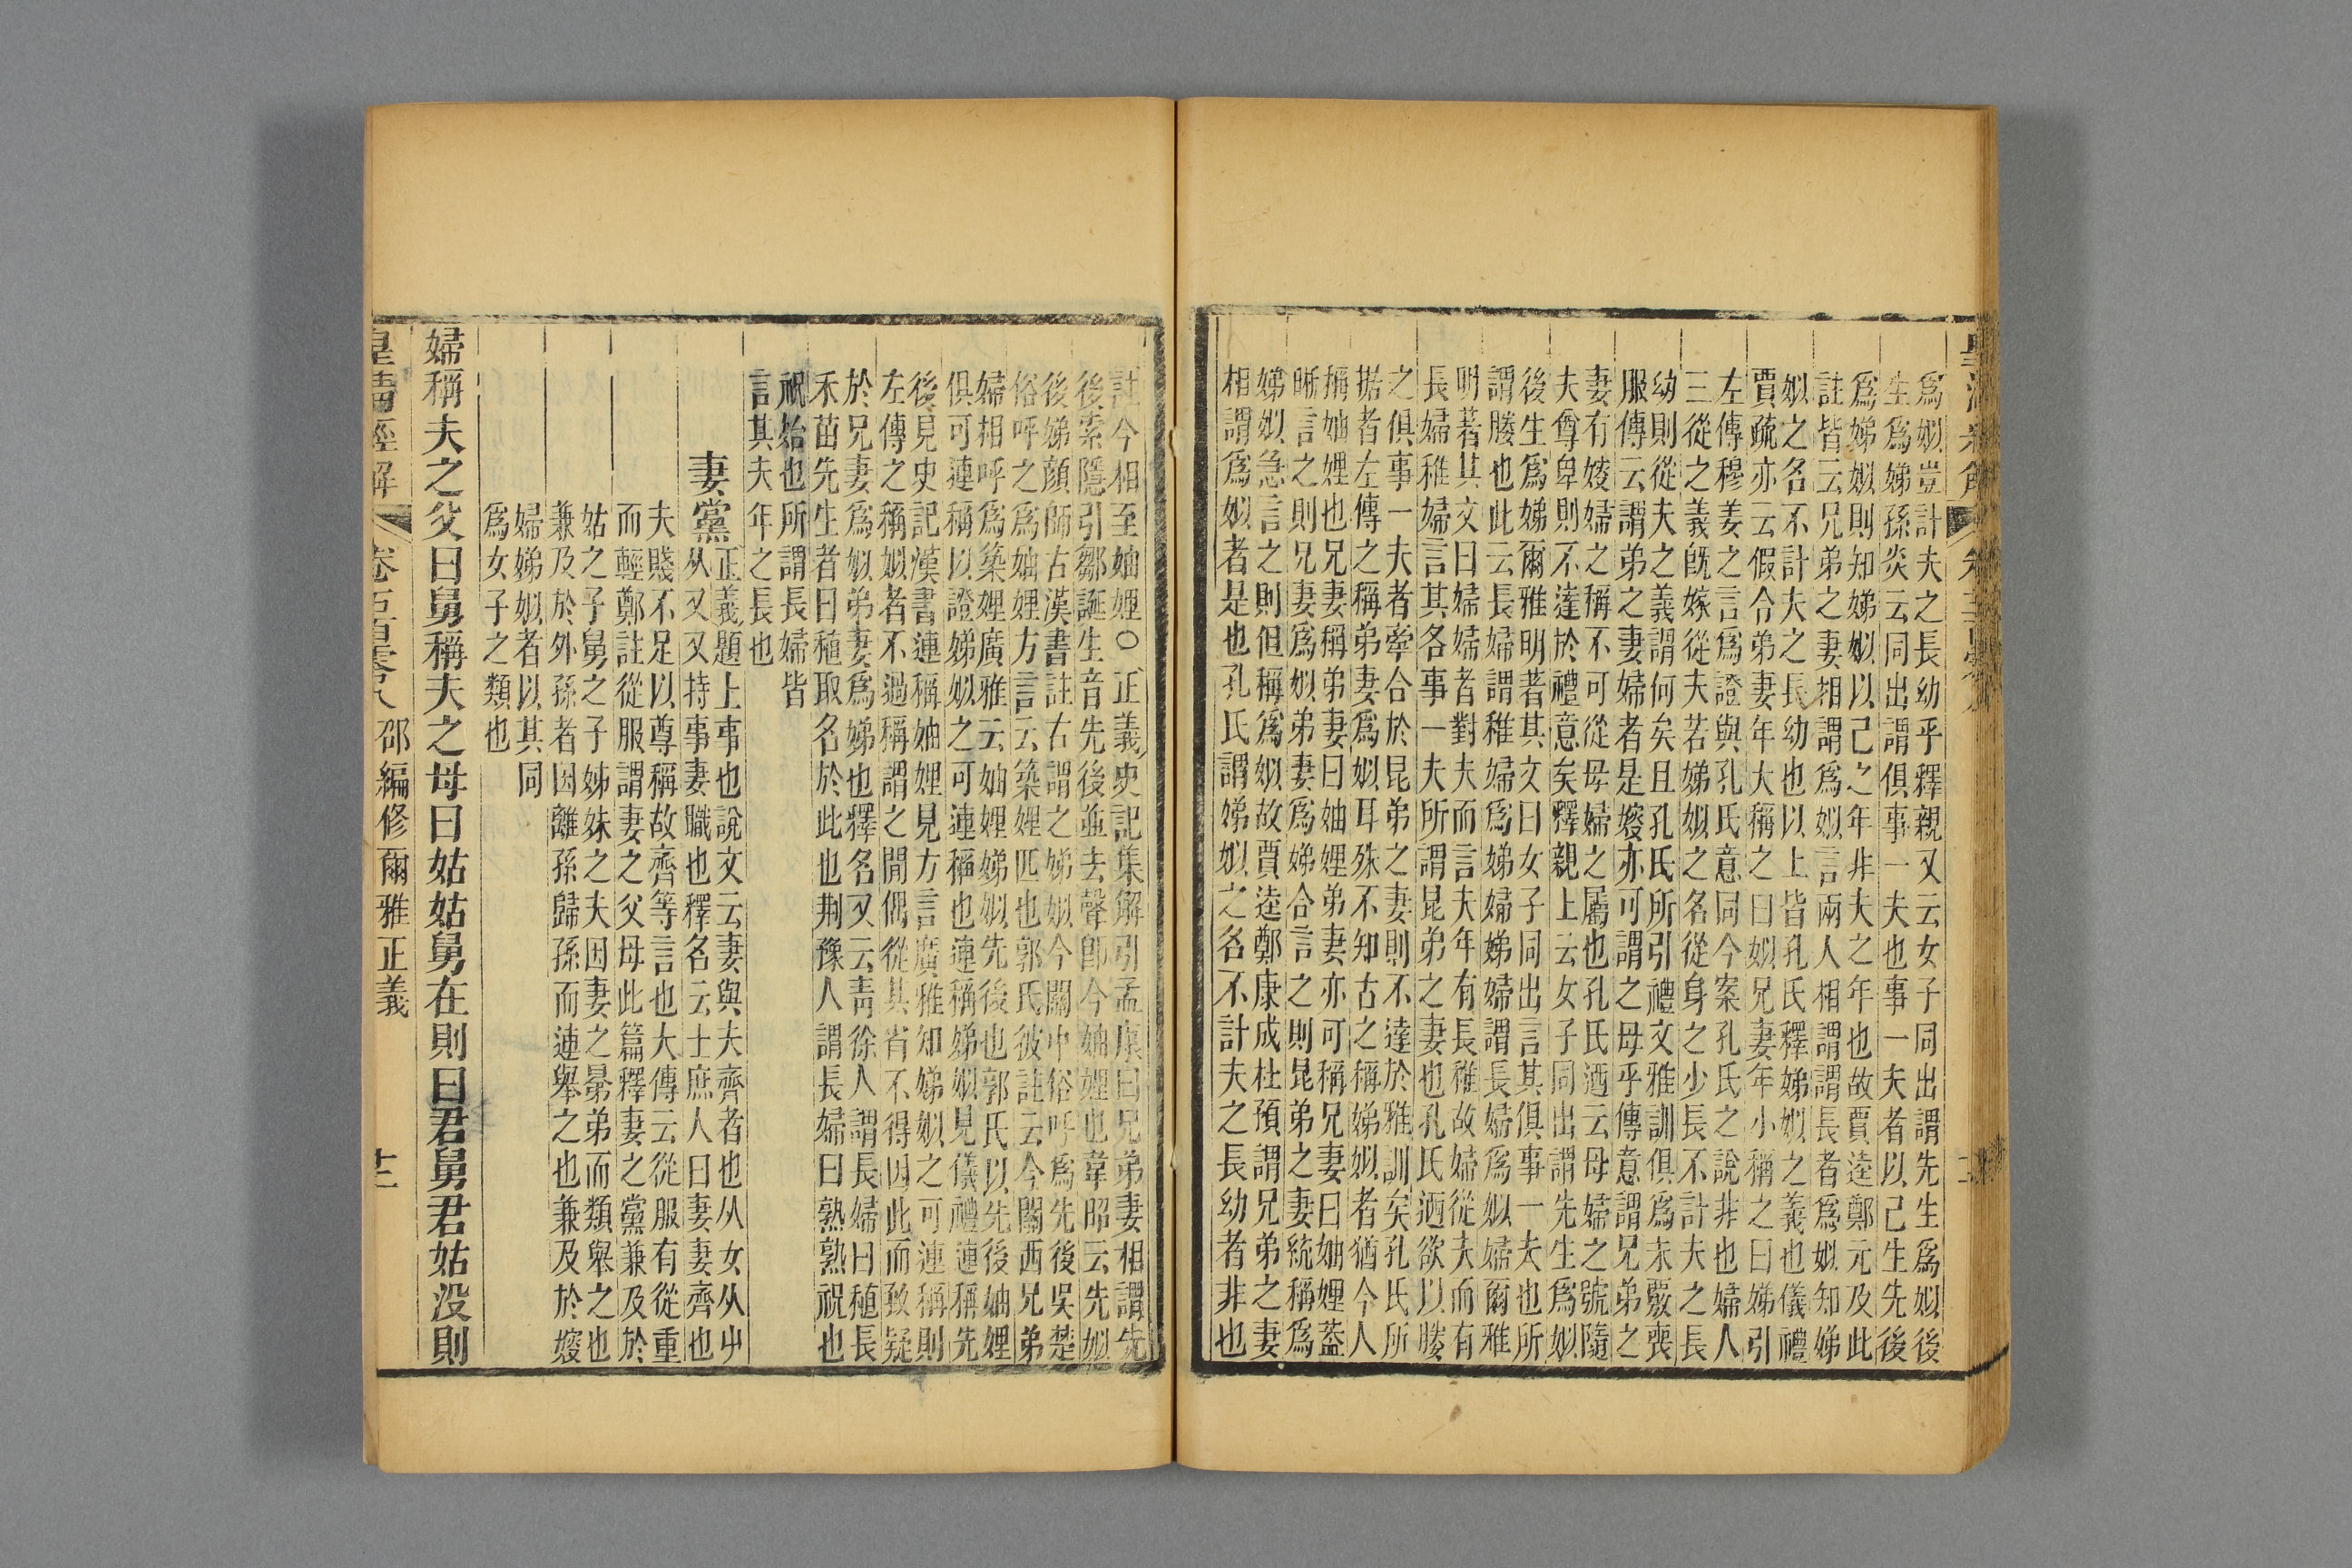 爲姒豈計夫之長幼乎釋親又云女子同出謂先生爲姒後
生爲娣孫炎云同出謂俱事一夫也事一夫者以己生先後
爲娣姒則知娣姒以己之年非夫之年也故賈逵鄭元及此
註皆云兄弟之妻相謂爲姒言兩人相謂謂長者爲姒知娣
姒之名不計夫之長幼也以上皆孔氏釋娣姒之義也儀禮
賈疏亦云假令弟妻年大稱之曰姒兄妻年小稱之曰娣引
左傳穆姜之言爲證與孔氏意同今案孔氏之說非也婦人
三從之義旣嫁從夫若娣姒之名從身之少長不計夫之長
幼則從夫之義謂何矣且孔氏所引禮文雅訓俱爲未覈喪
服傳云謂弟之妻婦者是嫂亦可謂之母乎傳意謂兄弟之
妻有嫂婦之稱不可從母婦之屬也孔氏迺云母婦之號隨
夫尊卑則不達於禮意矣釋親上云女子同出謂先生爲姒
後生爲娣爾雅明著其文曰女子同出言其俱事一夫也所
謂媵也此云長婦謂稚婦爲娣婦娣婦謂長婦爲姒婦爾雅
明著其文曰婦婦者對夫而言夫年有長稚故婦從夫而有
長婦稚婦言其各事一夫所謂昆弟之妻也孔氏迺欲以媵
之俱事一夫者牽合於昆弟之妻則不達於雅訓矣孔氏所
据者左傳之稱弟妻爲姒耳殊不知古之稱娣姒者猶今人
稱妯娌也兄妻稱弟妻曰妯娌弟妻亦可稱兄妻曰妯娌蓋
晰言之則兄妻爲姒弟妻爲娣合言之則昆弟之妻統稱爲
娣姒急言之則但稱爲姒故賈逵鄭康成杜預謂兄弟之妻
相謂爲姒者是也孔氏謂娣姒之名不計夫之長幼者非也
註今相至妯娌〇正義史記集解引孟康曰兄弟妻相謂先
後索隱引鄒誕生音先後並去聲卽今妯娌也韋昭云先姒
後娣顏師古漢書註右謂之娣姒今關中俗呼爲先後吳楚
俗呼之爲妯娌方言云築娌匹也郭氏彼註云今關西兄弟
婦相呼爲築娌廣雅云妯娌娣姒先後也郭氏以先後妯娌
俱可連稱以證娣姒之可連稱也連稱娣姒見儀禮連稱先
後見史記漢書連稱妯娌見方言廣雅知娣姒之可連稱則
左傳之稱姒者不過稱謂之閒偶從其省不得因此而致疑
於兄妻爲姒弟妻爲娣也釋名又云靑徐人謂長婦曰稙長
禾苗先生者曰稙取名於此也荆豫人謂長婦曰熟熟祝也
祝始也所謂長婦皆
言其夫年之長也
妻黨
正義題上事也說文云妻與夫齊者也从女从屮
从又又持事妻職也釋名云士庶人曰妻妻齊也
夫賤不足以尊稱故齊等言也大傳云從服有從重
而輕鄭註從服謂妻之父母此篇釋妻之黨兼及於
姑之子舅之子姊妹之夫因妻之晜弟而類舉之也
兼及於外孫者因離孫歸孫而連舉之也兼及於嫂
婦娣姒者以其同
爲女子之類也
婦稱夫之父曰舅稱夫之母曰姑姑舅在則曰君舅君姑没則
皇淸經解 卷五百零八 邵編修爾雅正義 十二